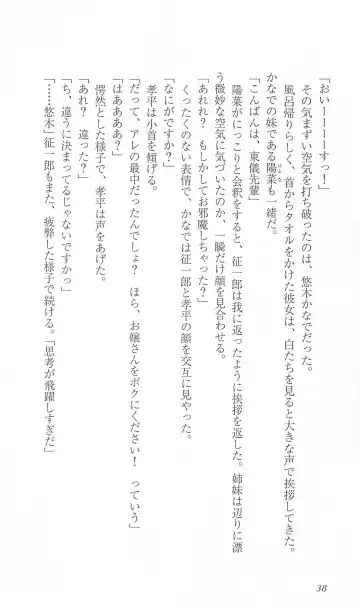 「おいーーーーすっ！」
その気まずい空気を打ち破ったのは、悠木かなでだった。
風呂帰りらしく、首からタオルをかけた彼女は、白たちを見ると大きな声で挨拶してきた。
かなでの妹である陽菜も一緒だ。
「こんばんは、東儀先輩」
陽菜がにっこりと会釈をすると、征一郎は我に返ったように挨拶を返した。姉妹は辺りに漂
う微妙な空気に気づいたのか、一瞬だけ顔を見合わせる。
「あれれ？　もしかしてお邪魔しちゃった？」
くったくのない表情で、かなでは征一郎と孝平の顔を交互に見やった。
「なにがですか？」
孝平は小首を傾げる。
「だって、アレの最中だったんでしょ？　ほら、お嬢さんをボクにください！　っていう」
「はああああ？」
愕然とした様子で、孝平は声をあげた。
「あれ？　違った？」
「ち、違うに決まってるじゃないですかっ」
「……悠木」征一郎もまた、疲弊した様子で続ける。「思考が飛躍しすぎだ」
38